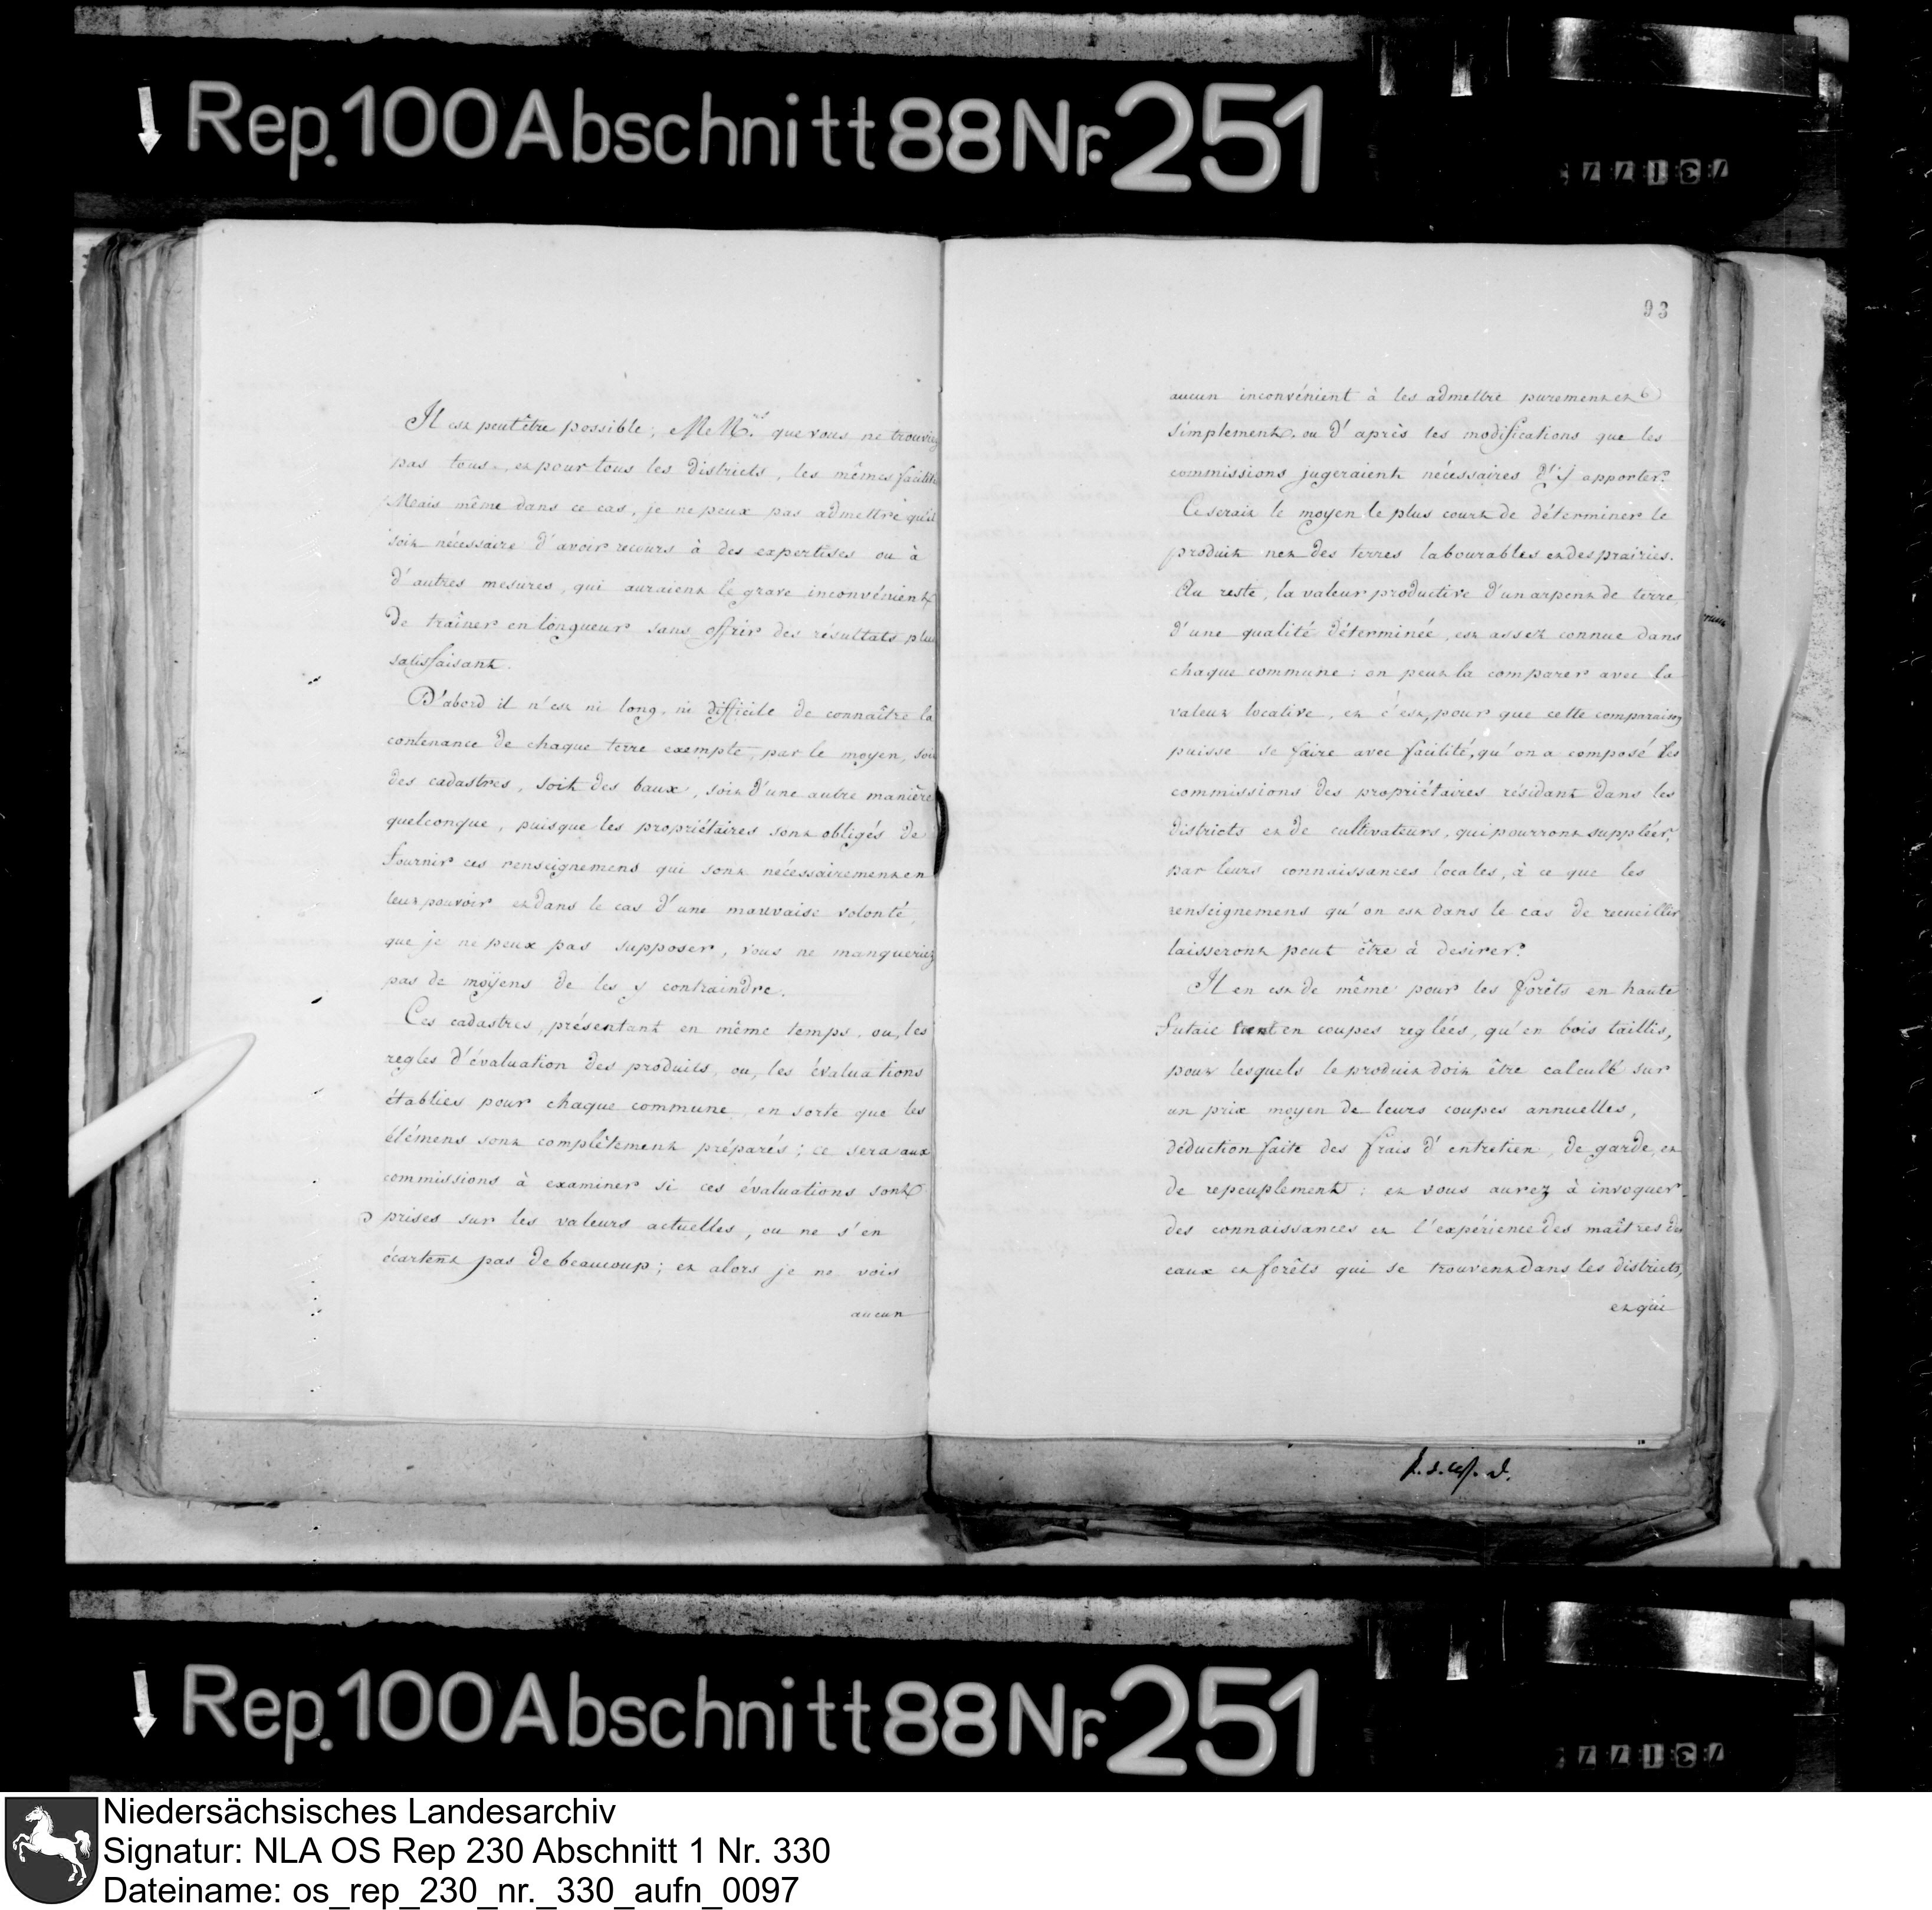 Rep. 100 Abschnitt 88 Nr. 251
Il est peutêtre possible, MM.rs que vous ne trouviez
pas tous, et pour tous les districts, les mêmes facilités
Mais même dans ce cas, je ne peux pas admettre qu'il
soit nécessaire d'avoir recours à des expertises ou à
d'autres mesures, qui auraient le grave inconvénient
de trainer en longueur sans offrir des résultats plus
satisfaisant.
D'abord il n'est ni long, ni difficile de connaître la
contenance de chaque terre exempte, par le moyen, soit
des cadastres, soit des baux, soit d'une autre manière
quelconque, puisque les propriétaires sont obligés de
fournir ces renseignemens qui sont nécessairement en
leur pouvoir et dans le cas d'une mauvaise volonté,
que je ne peux pas supposer, vous ne manqueriez
pas de moÿens de les y contraindre.
Ces cadastres, présentant en même temps, ou, les
regles d'évaluation des produits, ou, les évaluations
établies pour chaque commune en sorte que les
élémens sont complêtement préparés; ce sera aux
commissions à examiner si ces évaluations sont
prises sur les valeurs actuelles, ou ne s'en
écartent pas de beaucoup; et alors je ne vois
aucun
93
aucun inconvénient à les admettre purement et
simplement, ou d'après les modifications que les
commissions jugeraient nécessaires d'y apporter.
Ce serait le moyen le plus court de déterminer le
produit net des terres labourables et des prairies.
Au reste, la valeur productive d'un arpent de terre
d'une qualité déterminée, est assez connue dans
chaque commune: on peut la comparer avec la
valeur locative, et c'est, pour que cette comparaison
puisse se faire avec facilité, qu'on a composé les
commissions des propriétaires résidant dans les
districts et de cultivateurs, qui pourront suppléer,
par leurs connaissances locales, à ce que les
renseignemens qu'on est dans le cas de recueillir
laisseront peut être à desirer.
Il en est de même pour les forêts en haute
futaie en coupes reglées, qu'en bois taillis,
pour lesquels le produit doit être calculé sur
un prix moyen de leurs coupes annuelles,
déduction faite des frais d'entretien, de garde, et
de repeuplement: et vous aurez à invoquer
des connaissances et l'expérience des maîtres des
eaux et forêts qui se trouvent dans les districts,
et qui
Rep. 100 Abschnitt 88 Nr. 251
Niedersächsisches Landesarchiv
Signatur: NLA OS Rep 230 Abschnitt 1 Nr. 330
Dateiname: os_rep_230_nr._330_aufn_0097